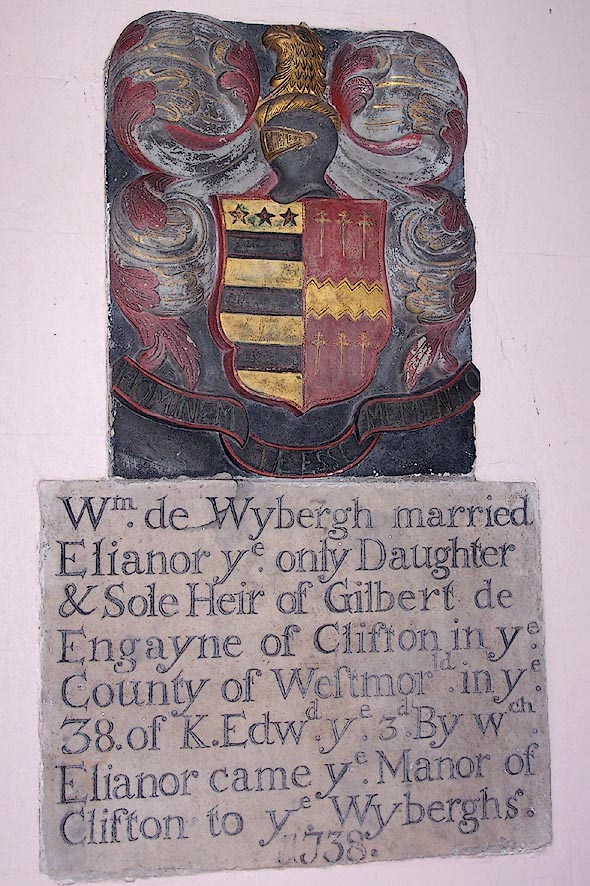 HOMINEM TE ESSE MEMENTO
Wm. de Wybergh married
Elianor ye. only Daughter
& Sole Heir of Gilbert de
Engayne of Clifton in ye.
County of Weſtmorld. in ye.
38. of K. Edwd. ye. 3d. By wch.
Elianor came ye. Manor of
Clifton to ye. Wyberghs.
1738.